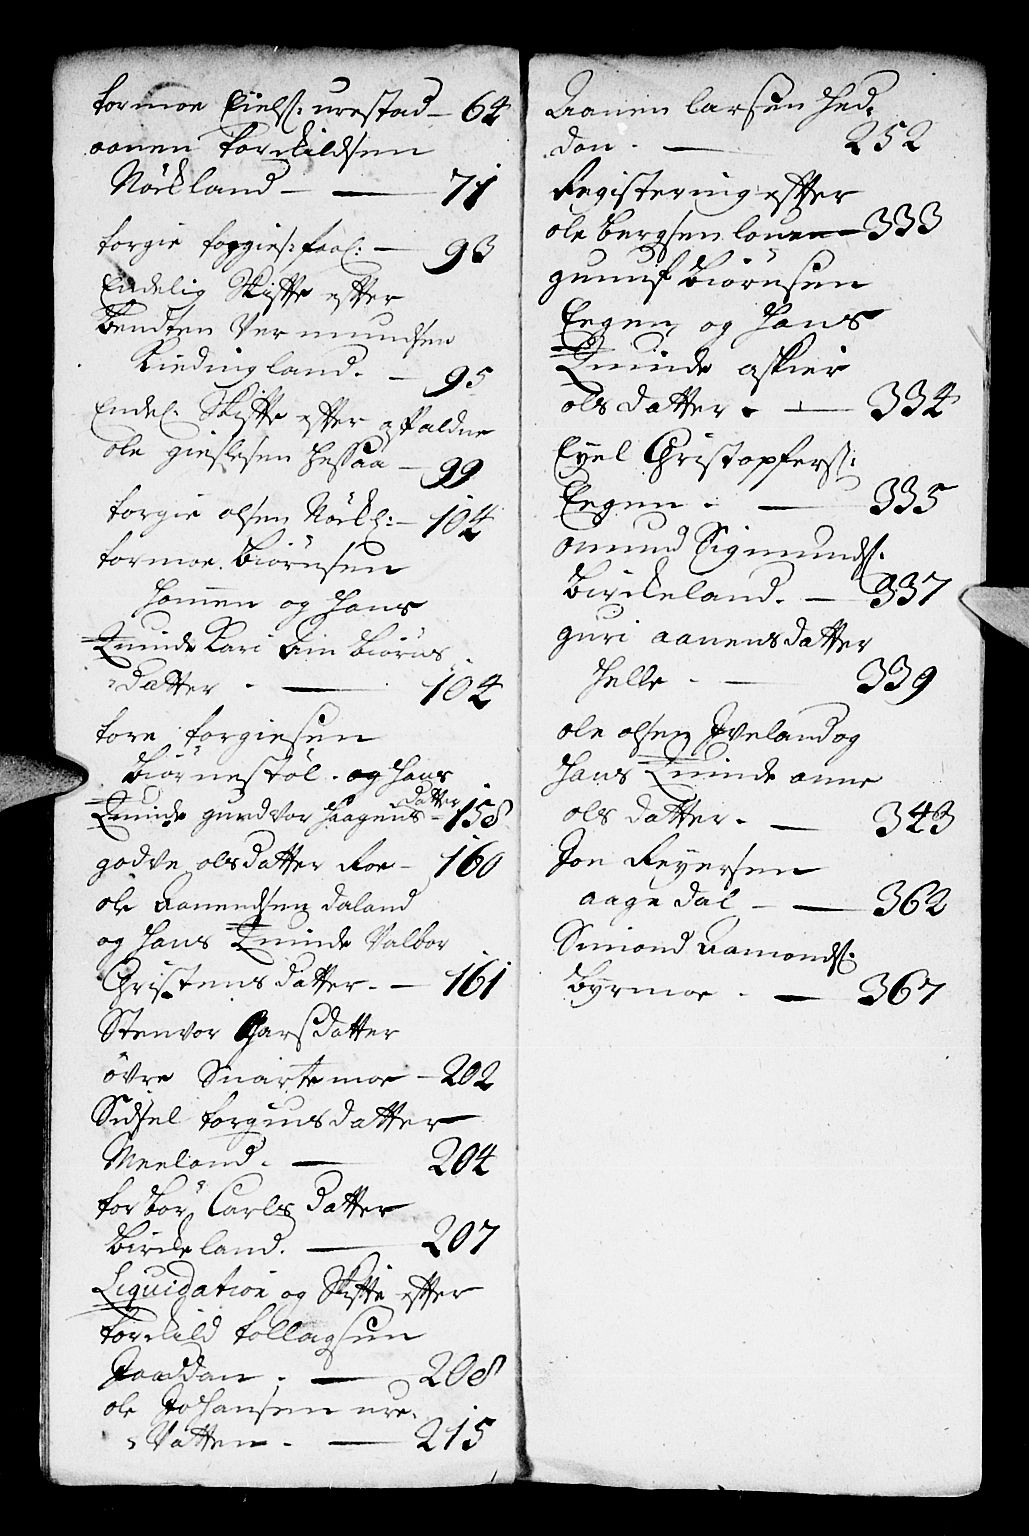 tormoe Eiels: urestad — 64
aanen torkildsen
Nörkland — 71
torgie torgies: faal: — 93
Endelig Skifte efter
Bendten Vermundsen
Kiedingland. — 95
Endel: Skifte efter afaldne
ole gieslesen hessaa — 99
torgie olsen Nörkl: — 104
tormoe Biörnsen
homen og hans
Quinde Kari Biörns
datter — 104
tore torgiesen
Biörnestöl. og hans
Quinde gundvor haagens datter — 158
godve olsdatter Roe — 160
ole Aanendsen daland
og hans Quinde Valbor
Christensdatter. — 161
Stenvor Garsdatter
övre Snartemoe — 202
Sidsel torgiusdatter
Meeland. — 204
torbör Carls datter
Birkeland. — 207
Liquidation og Skifte efter
torkild tollagsen
Joaddan. — 208
ole Johansen ure-
Vatten. — 215
Aanen larsen hed-
dan. — 252
Registering efter
ole bergsen louen — 333
gunuf Biörnsen
Eegen, og hans
Quinde askier
olsdatter. — 334
Eyel Christopfers:
Eegen. — 335
omund Sigmunds:
Birkeland. — 337
guri aanensdatter
helle — 339
ole olsen Iveland og
hans Quinde anne
olsdatter. — 343
Jon Reyersen
aagedal — 362
Simond Aamonds:
Byrmoe. — 367